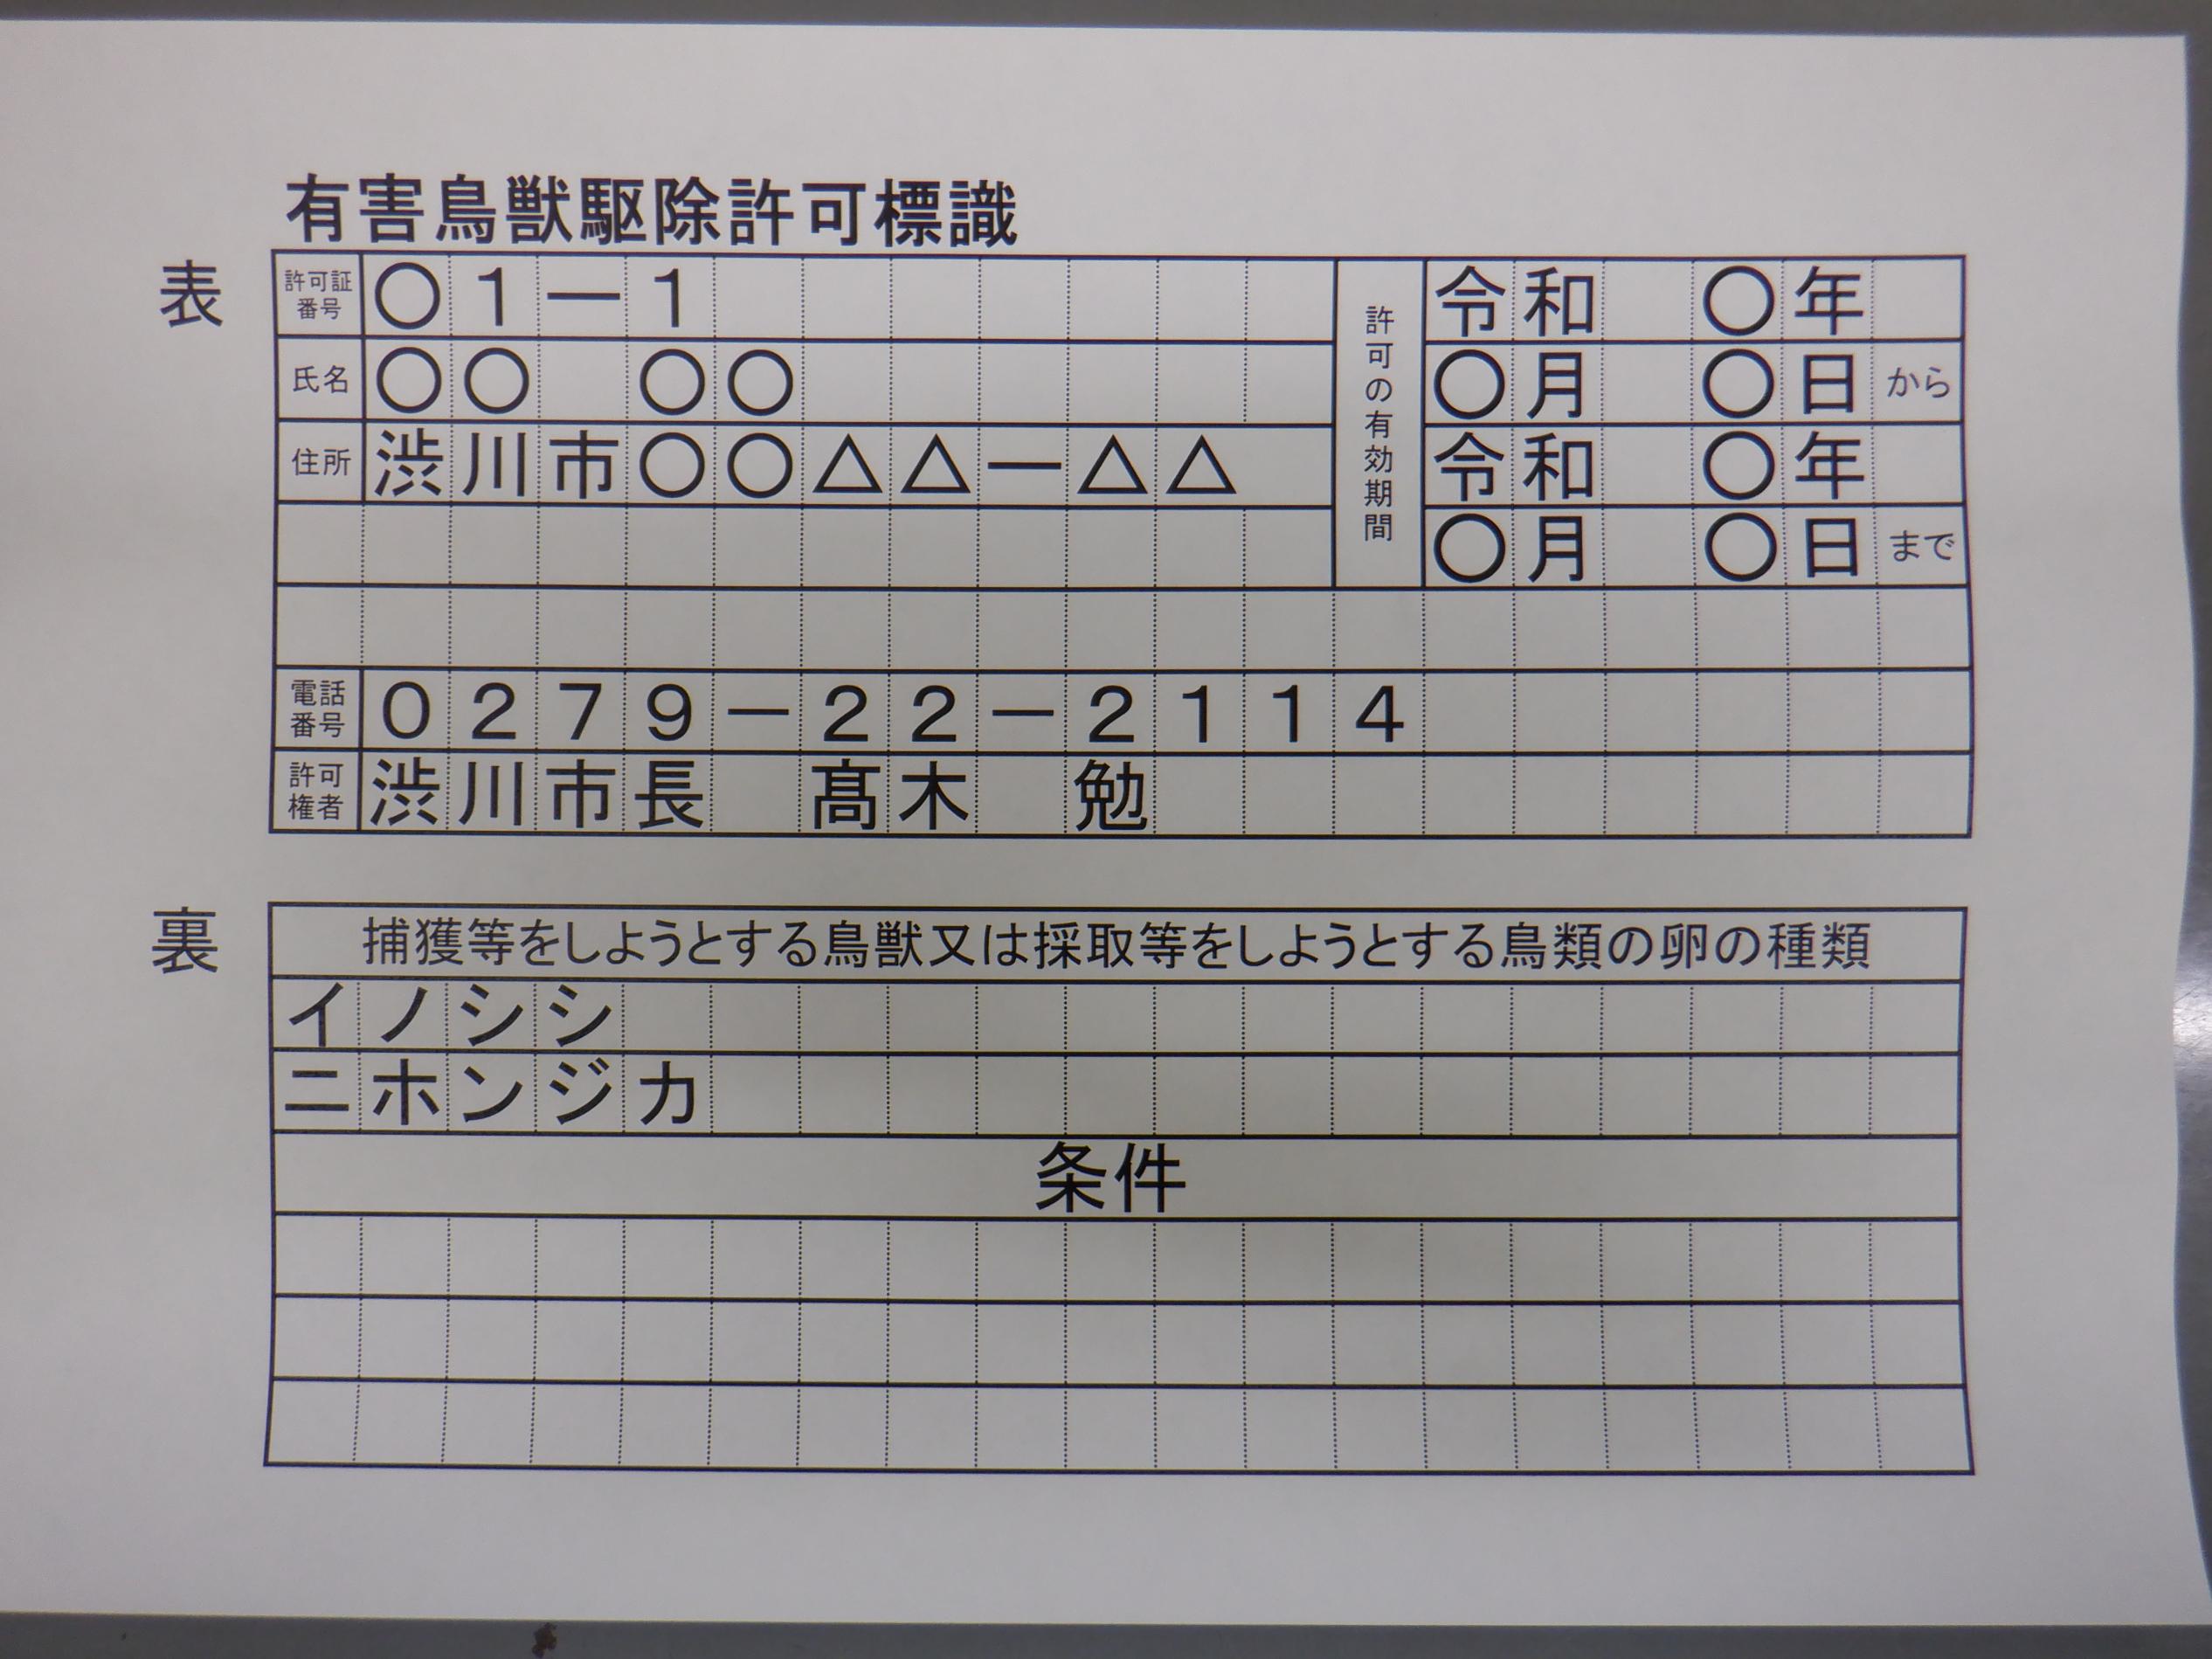 有害鳥獣駆除許可標識
表
許可証番号 〇1ー1
氏名 〇〇 〇〇
住所 渋川市〇〇△△ー△△
許可の有効期間
令和 〇年
〇月 〇日から
令和 〇年
〇月 〇日まで
電話番号 0279－22－2114
許可権者 渋川市長 髙木 勉
裏
捕獲等をしようとする鳥獣又は採取等をしようとする鳥類の卵の種類
イノシシ
ニホンジカ
条件